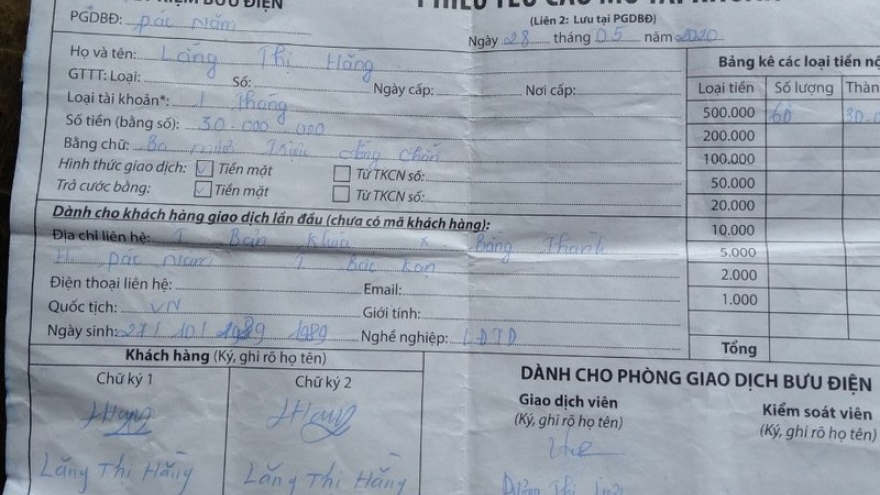 KIỆM BƯU ĐIỆN
PGDBĐ: Pác Nặm
PHIẾU YÊU CẦU MỞ TÀI KHOẢN
(Liên 2: Lưu tại PGDBĐ)
Ngày 28 tháng 05 năm 2020
Họ và tên: Lăng Thị Hằng
GTTT: Loại: Số: Ngày cấp: Nơi cấp:
Loại tài khoản*: 1 Tháng
Số tiền (bằng số): 30.000 000
Bằng chữ: Ba mươi Triệu đồng chẵn
Hình thức giao dịch: Tiền mặt Từ TKCN số:
Trả cước bằng: Tiền mặt Từ TKCN số:
Dành cho khách hàng giao dịch lần đầu (chưa có mã khách hàng):
Địa chỉ liên hệ: T. Bản Khúa X. Bằng Thành
H. Pác Nặm T Bắc Kạn
Điện thoại liên hệ: Email:
Quốc tịch: VN Giới tính:
Ngày sinh: 27/10/1989 1989 Nghề nghiệp: LĐTD
Bảng kê các loại tiền nộ
Loại tiền Số lượng Thàn
500.000 60 30.0
200.000
100.000
50.000
20.000
10.000
5.000
2.000
1.000
Tổng
Khách hàng (Ký, ghi rõ họ tên)
Chữ ký 1 Chữ ký 2
Hằng Hằng
Lăng Thị Hằng Lăng Thị Hằng
DÀNH CHO PHÒNG GIAO DỊCH BƯU ĐIỆN
Giao dịch viên Kiểm soát viên
(Ký, ghi rõ họ tên) (Ký, ghi rõ họ tên)
Dương Thị